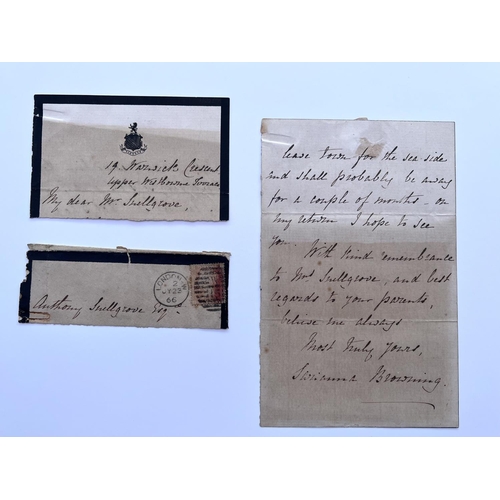 19 Warwick Crescent
Upper Westbourne Terrace
My dear Mr Snellgrove,
LONDON W
2
66
Anthony Snellgrove Esq.
leave town for the sea side
and shall probably be away
for a couple of months - on
my return I hope to see
you.
With kind remembrance
to Mrs Snellgrove, and best
regards to your parents,
believe me always
Most truly yours,
Sarianna Browning.